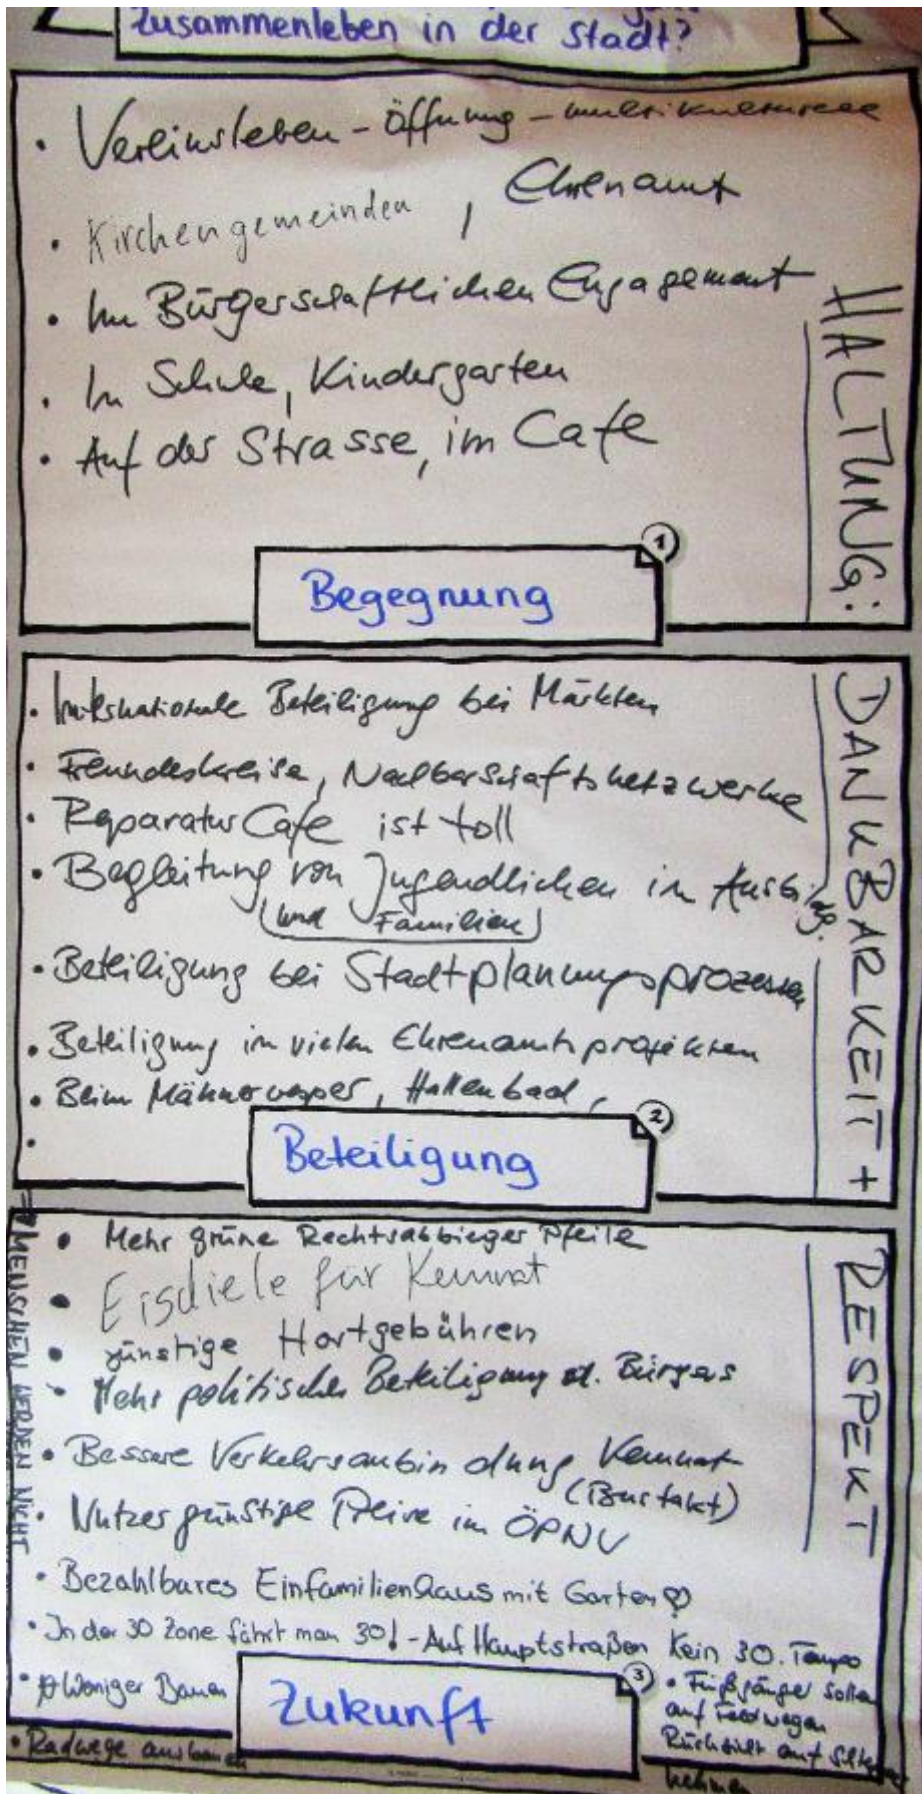 Zusammenleben in der Stadt?
• Vereinsleben - Öffnung - multikulturelle
• Kirchengemeinden, Ehrenamt
• Im Bürgerschaftlichen Engagement
• In Schule, Kindergarten
• Auf der Strasse, im Cafe
HALTUNG:
1
Begegnung
• Internationale Beteiligung bei Märkten
• Freundeskreise, Nachbarschaftsnetzwerke
• Reparatur Cafe ist toll
• Begleitung von Jugendlichen in Ausbildg.
(und Familien)
• Beteiligung bei Stadtplanungsprozessen
• Beteiligung in vielen Ehrenamtsprojekten
• Beim Männervesper, Hallenbad,
•
DANKBARKEIT +
2
Beteiligung
• Mehr grüne Rechtsabbieger Pfeile
• Eisdiele für Kemnat
• günstige Hortgebühren
• Mehr politische Beteiligung d. Bürgers
• Bessere Verkehrsanbindung Kemnat
(Bustakt)
• Nutzergünstige Preise im ÖPNV
• Bezahlbares Einfamilienhaus mit Garten ♡
• In der 30 Zone fährt man 30! - Auf Hauptstraßen kein 30. Tempo
• Weniger Bauen
• Radwege ausbauen
• Fußgänger sollen
auf Feldwegen
Rücksicht auf
nehmen
RESPEKT
→ MENSCHEN WERDEN NICHT
3
Zukunft